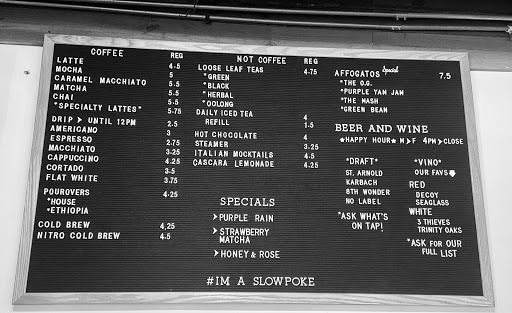 COFFEE REG
LATTE 4.5
MOCHA 5
CARAMEL MACCHIATO 5
MATCHA 5
CHAI 5
*SPECIALTY LATTES* 5.75
DRIP > UNTIL 12PM 2.5
AMERICANO 3
ESPRESSO 2.75
MACCHIATO 3.25
CAPPUCCINO 4.25
CORTADO 3.5
FLAT WHITE 3.75
POUROVERS 4.25
*HOUSE
*ETHIOPIA
COLD BREW 4.25
NITRO COLD BREW 4.5
NOT COFFEE REG
LOOSE LEAF TEAS 4.75
*GREEN
*BLACK
*HERBAL
*OOLONG
DAILY ICED TEA 4
REFILL 1.5
HOT CHOCOLATE 4
STEAMER 3.25
ITALIAN MOCKTAILS 4.5
CASCARA LEMONADE 4.25
SPECIALS
>PURPLE RAIN
>STRAWBERRY
MATCHA
>HONEY & ROSE
AFFOGATOS Special 7.5
*THE O.G.
*PURPLE YAM JAM
*THE MASH
*GREEN BEAN
BEER AND WINE
*HAPPY HOUR* M>F 4PM>CLOSE
*DRAFT*
ST. ARNOLD
KARBACH
8TH WONDER
NO LABEL
*ASK WHAT'S
ON TAP!
*VINO*
OUR FAVS
RED
DECOY
SEAGLASS
WHITE
3 THIEVES
TRINITY OAKS
*ASK FOR OUR
FULL LIST
#IM A SLOWPOKE